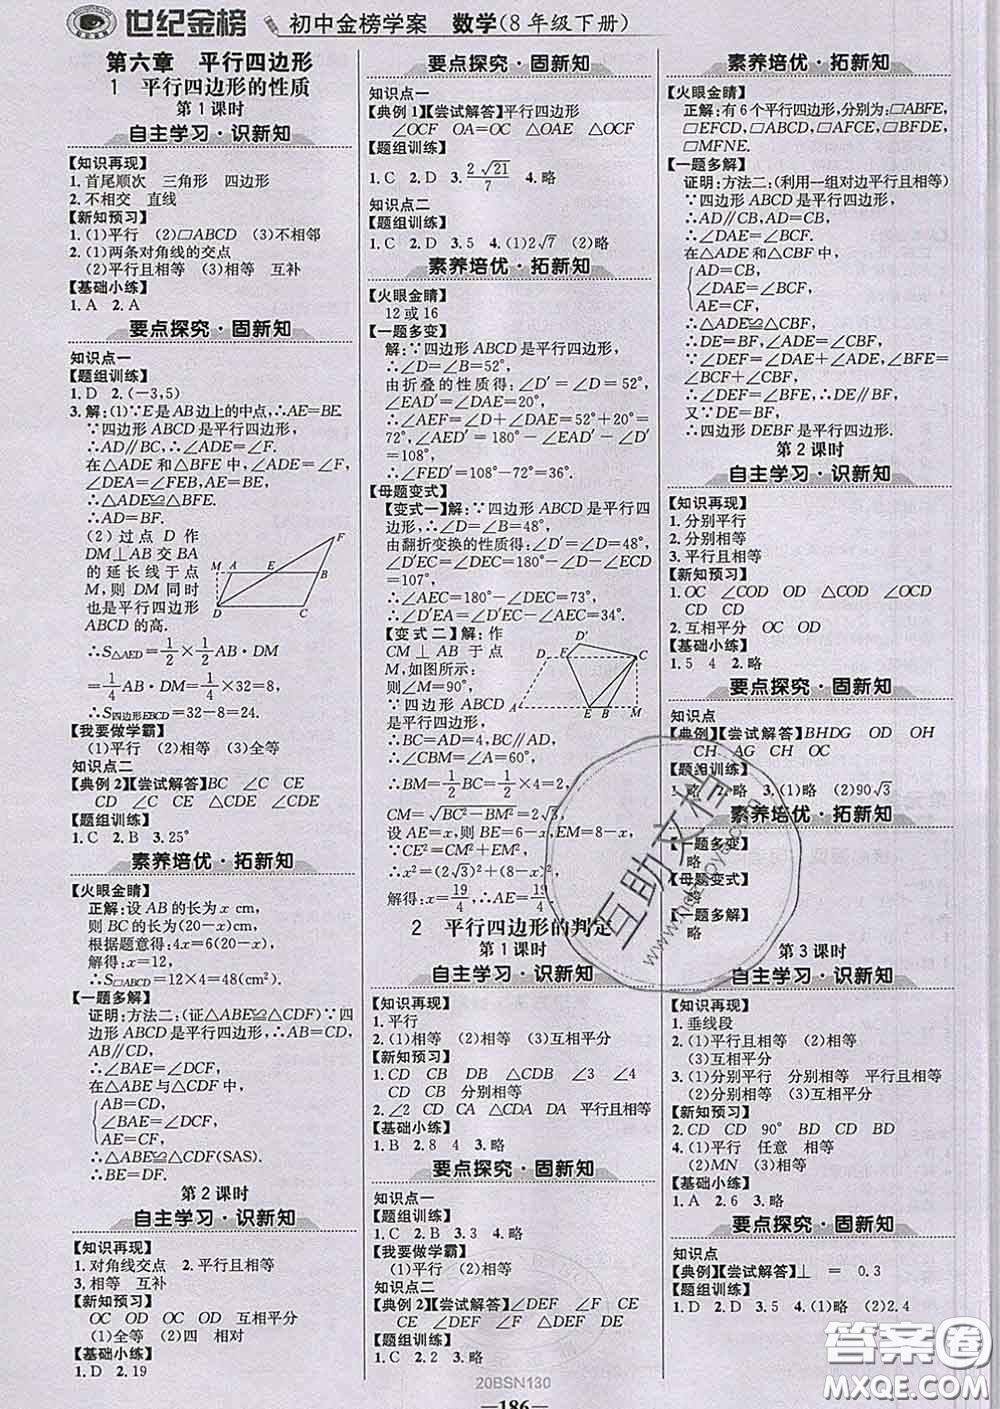 世纪金榜 初中金榜学案 数学(8年级下册)
第六章 平行四边形
1 平行四边形的性质
第1课时
自主学习·识新知
【知识再现】
1.首尾顺次 三角形 四边形
2.不相交 直线
【新知预习】
1.(1)平行 (2)□ABCD (3)不相邻
2.(1)两条对角线的交点
(2)平行且相等 (3)相等 互补
【基础小练】
1.A 2.A
要点探究·固新知
知识点一
【题组训练】
1.D 2.(-3,5)
3.解:(1)∵E是AB边上的中点,∴AE=BE.
∵四边形ABCD是平行四边形,
∴AD∥BC,∴∠ADE=∠F.
在△ADE和△BFE中,∠ADE=∠F,
∠DEA=∠FEB,AE=BE,
∴△ADE≌△BFE.
∴AD=BF.
(2)过点D作
DM⊥AB交BA
的延长线于点
M,则DM同时
也是平行四边形
ABCD的高.
M A E B F D C
∴S△AED=1/2×1/2AB·DM
=1/4AB·DM=1/4×32=8,
∴S四边形EBCD=32-8=24.
【我要做学霸】
(1)平行 (2)相等 (3)全等
知识点二
【典例2】【尝试解答】BC ∠C CE
CD ∠C CE
【题组训练】
1.C 2.B 3.25°
素养培优·拓新知
【火眼金睛】
正解:设AB的长为x cm,
则BC的长为(20-x)cm,
根据题意得:4x=6(20-x),
解得:x=12,
∴S□ABCD=12×4=48(cm²).
【一题多解】
证明:方法二:(证△ABE≌△CDF)∵四
边形ABCD是平行四边形,∴AB=CD,
AB∥CD,
∴∠BAE=∠DCF,
在△ABE与△CDF中,
AB=CD,
∠BAE=∠DCF,
AE=CF,
∴△ABE≌△CDF(SAS).
∴BE=DF.
第2课时
自主学习·识新知
【知识再现】
1.对角线交点 2.平行且相等
3.相等 互补
【新知预习】
OC OD OC OD 互相平分
(1)全等 (2)四 相对
【基础小练】
1.D 2.19
要点探究·固新知
知识点一
【典例1】【尝试解答】平行四边形
∠OCF OA=OC △OAE △OCF
【题组训练】
1.C 2.D 3.2√21/7 4.略
知识点二
【题组训练】
1.C 2.D 3.5 4.(1)2√7 (2)略
素养培优·拓新知
【火眼金睛】
12或16
【一题多变】
解:∵四边形ABCD是平行四边形,
∴∠D=∠B=52°,
由折叠的性质得:∠D′=∠D=52°,
∠EAD′=∠DAE=20°,
∴∠AEF=∠D+∠DAE=52°+20°=
72°,∠AED′=180°-∠EAD′-∠D′=
108°,
∴∠FED′=108°-72°=36°.
【母题变式】
【变式一】解:∵四边形ABCD是平行四
边形,∴∠D=∠B=48°,
由翻折变换的性质得:∠D′=∠D=48°,
∠D′EC=∠DEC=180°-∠D-∠ECD
=107°,
∴∠AEC=180°-∠DEC=73°,
∴∠D′EA=∠D′EC-∠AEC=34°.
【变式二】解:作
CM⊥AB于点
M,如图所示:
则∠M=90°,
∵四边形ABCD
是平行四边形,
D′ C A E B M
∴BC=AD=4,BC∥AD,
∴∠CBM=∠A=60°,
∴BM=1/2BC=1/2×4=2,
CM=√(BC²-BM²)=2√3,
设AE=x,则BE=6-x,
∵CE²=CM²+EM²,
∴x²=(2√3)²+(8-x)²,
解得:x=19/4,∴AE=19/4.
2 平行四边形的判定
第1课时
自主学习·识新知
【知识再现】
1.平行
2.(1)相等 (2)相等 (3)互相平分
【新知预习】
1.CD CB DB △CDB ∠3 ∠4
CD CB 分别相等
2.∠2 CD CA △CDA DA 平行且相等
【基础小练】
1.B 2.8 4 3.略
要点探究·固新知
知识点一
【题组训练】
1.C 2.B 3.3 4.略
【我要做学霸】
(1)平行 (2)相等
知识点二
【典例2】【尝试解答】∠DEF ∠F CE
CE ∠DEF ∠F CE DE
【题组训练】
1.C 2.2 3.略
素养培优·拓新知
【火眼金睛】
正解:有6个平行四边形,分别为:□ABFE,
□EFCD,□ABCD,□AFCE,□BFDE,
□MFNE.
【一题多解】
证明:方法二:(利用一组对边平行且相等)
∵四边形ABCD是平行四边形,
∴AD∥CB,AD=CB,
∴∠DAE=∠BCF.
在△ADE和△CBF中,
AD=CB,
∠DAE=∠BCF,
AE=CF,
∴△ADE≌△CBF,
∴DE=BF,∠ADE=∠CBF,
∵∠DEF=∠DAE+∠ADE,
∠BFE=∠BCF+∠CBF,
∴∠DEF=∠BFE,∴DE∥BF,
又∵DE=BF,
∴四边形DEBF是平行四边形.
第2课时
自主学习·识新知
【知识再现】
1.分别平行
2.分别相等
3.平行且相等
【新知预习】
1.OC ∠COD OD △COD ∠OCD
CD CD
2.互相平分 OC OD
【基础小练】
1.5 4 2.略
要点探究·固新知
知识点
【典例】【尝试解答】BHDG OD OH
CH AG CH OC
【题组训练】
1.略 2.略 3.(1)略 (2)90√3
素养培优·拓新知
【一题多变】
略
【母题变式】
略
【一题多解】
略
第3课时
自主学习·识新知
【知识再现】
1.垂线段
2.(1)平行且相等 (2)相等
(3)互相平分
3.(1)分别平行 分别相等 平行且相等
(2)分别相等 (3)互相平分
【新知预习】
2.CD CD 90° BD CD BD
4.(1)平行 任意 相等
(2)MN (3)相等
【基础小练】
1.A 2.6 3.略
要点探究·固新知
知识点
【典例】【尝试解答】⊥ = 0.3
【题组训练】
1.D 2.D 3.5 4.(1)略 (2)2.4
互助文档
www.hzdmoyi.com
20BSN130
—186—
答案圈
MXQE.COM